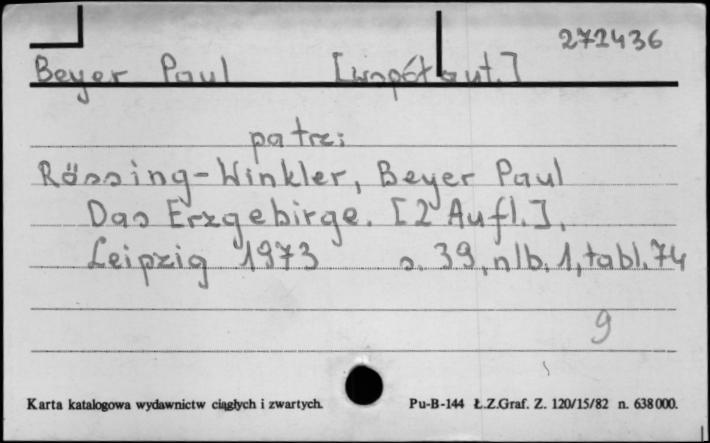 272436
Beyer Paul [współaut.]
patrz:
Rössing-Winkler, Beyer Paul
Das Erzgebirge. [2 Aufl.],
Leipzig 1973 s. 39, nlb. 1, tabl. 74
9
Karta katalogowa wydawnictw ciągłych i zwartych. Pu-B-144 Ł.Z.Graf. Z. 120/15/82 n. 638000.